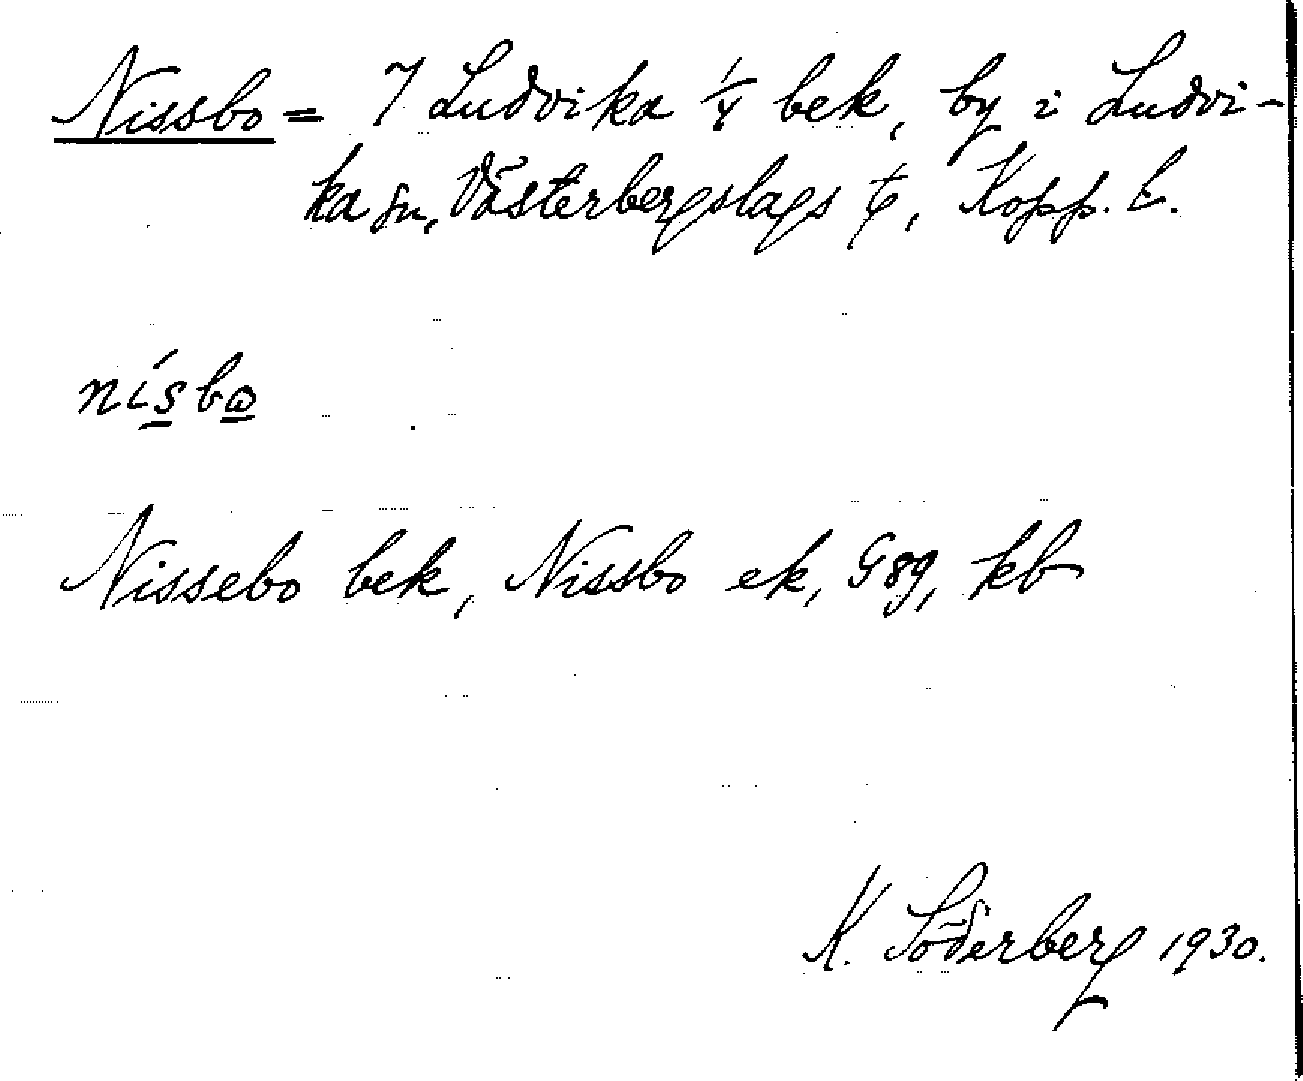 Nissbo = 7 Ludvika 1/4 bek, by i Ludvi-
ka sn, Västerbergslags t, Kopp. l.
nísbo
Nissebo bek, Nissbo ek, G89, kb
K. Söderberg 1930.